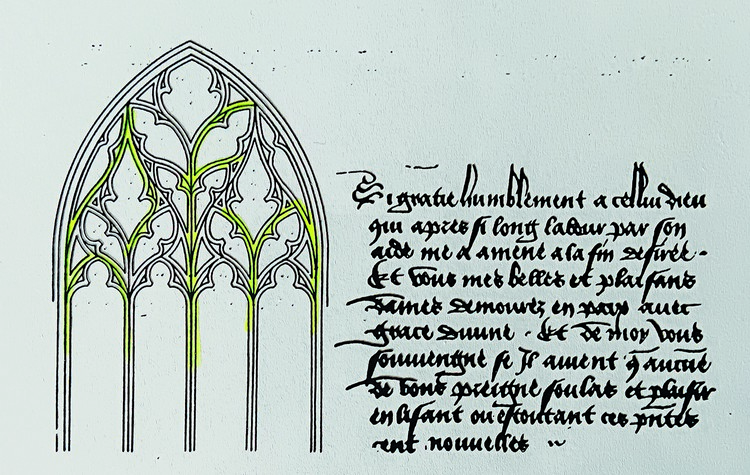 Si gratie humblement a cellui dieu
qui apres si long labour par son
aide me a amene a la fin desiree ·
Et vous mes belles et plaisans
dames demourez en paix avec
grace divine · Et de moy vous
souviengne se Il avient q̄ aucūe
de vous preigne soulas et plaisir
en lisant ou escoutant ces pn̄tes
cent nouvelles